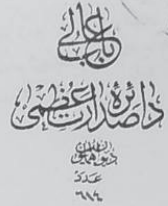 باب عالی
دائره صدارت عظمی
دیوان همایون
عدد
٦١٤